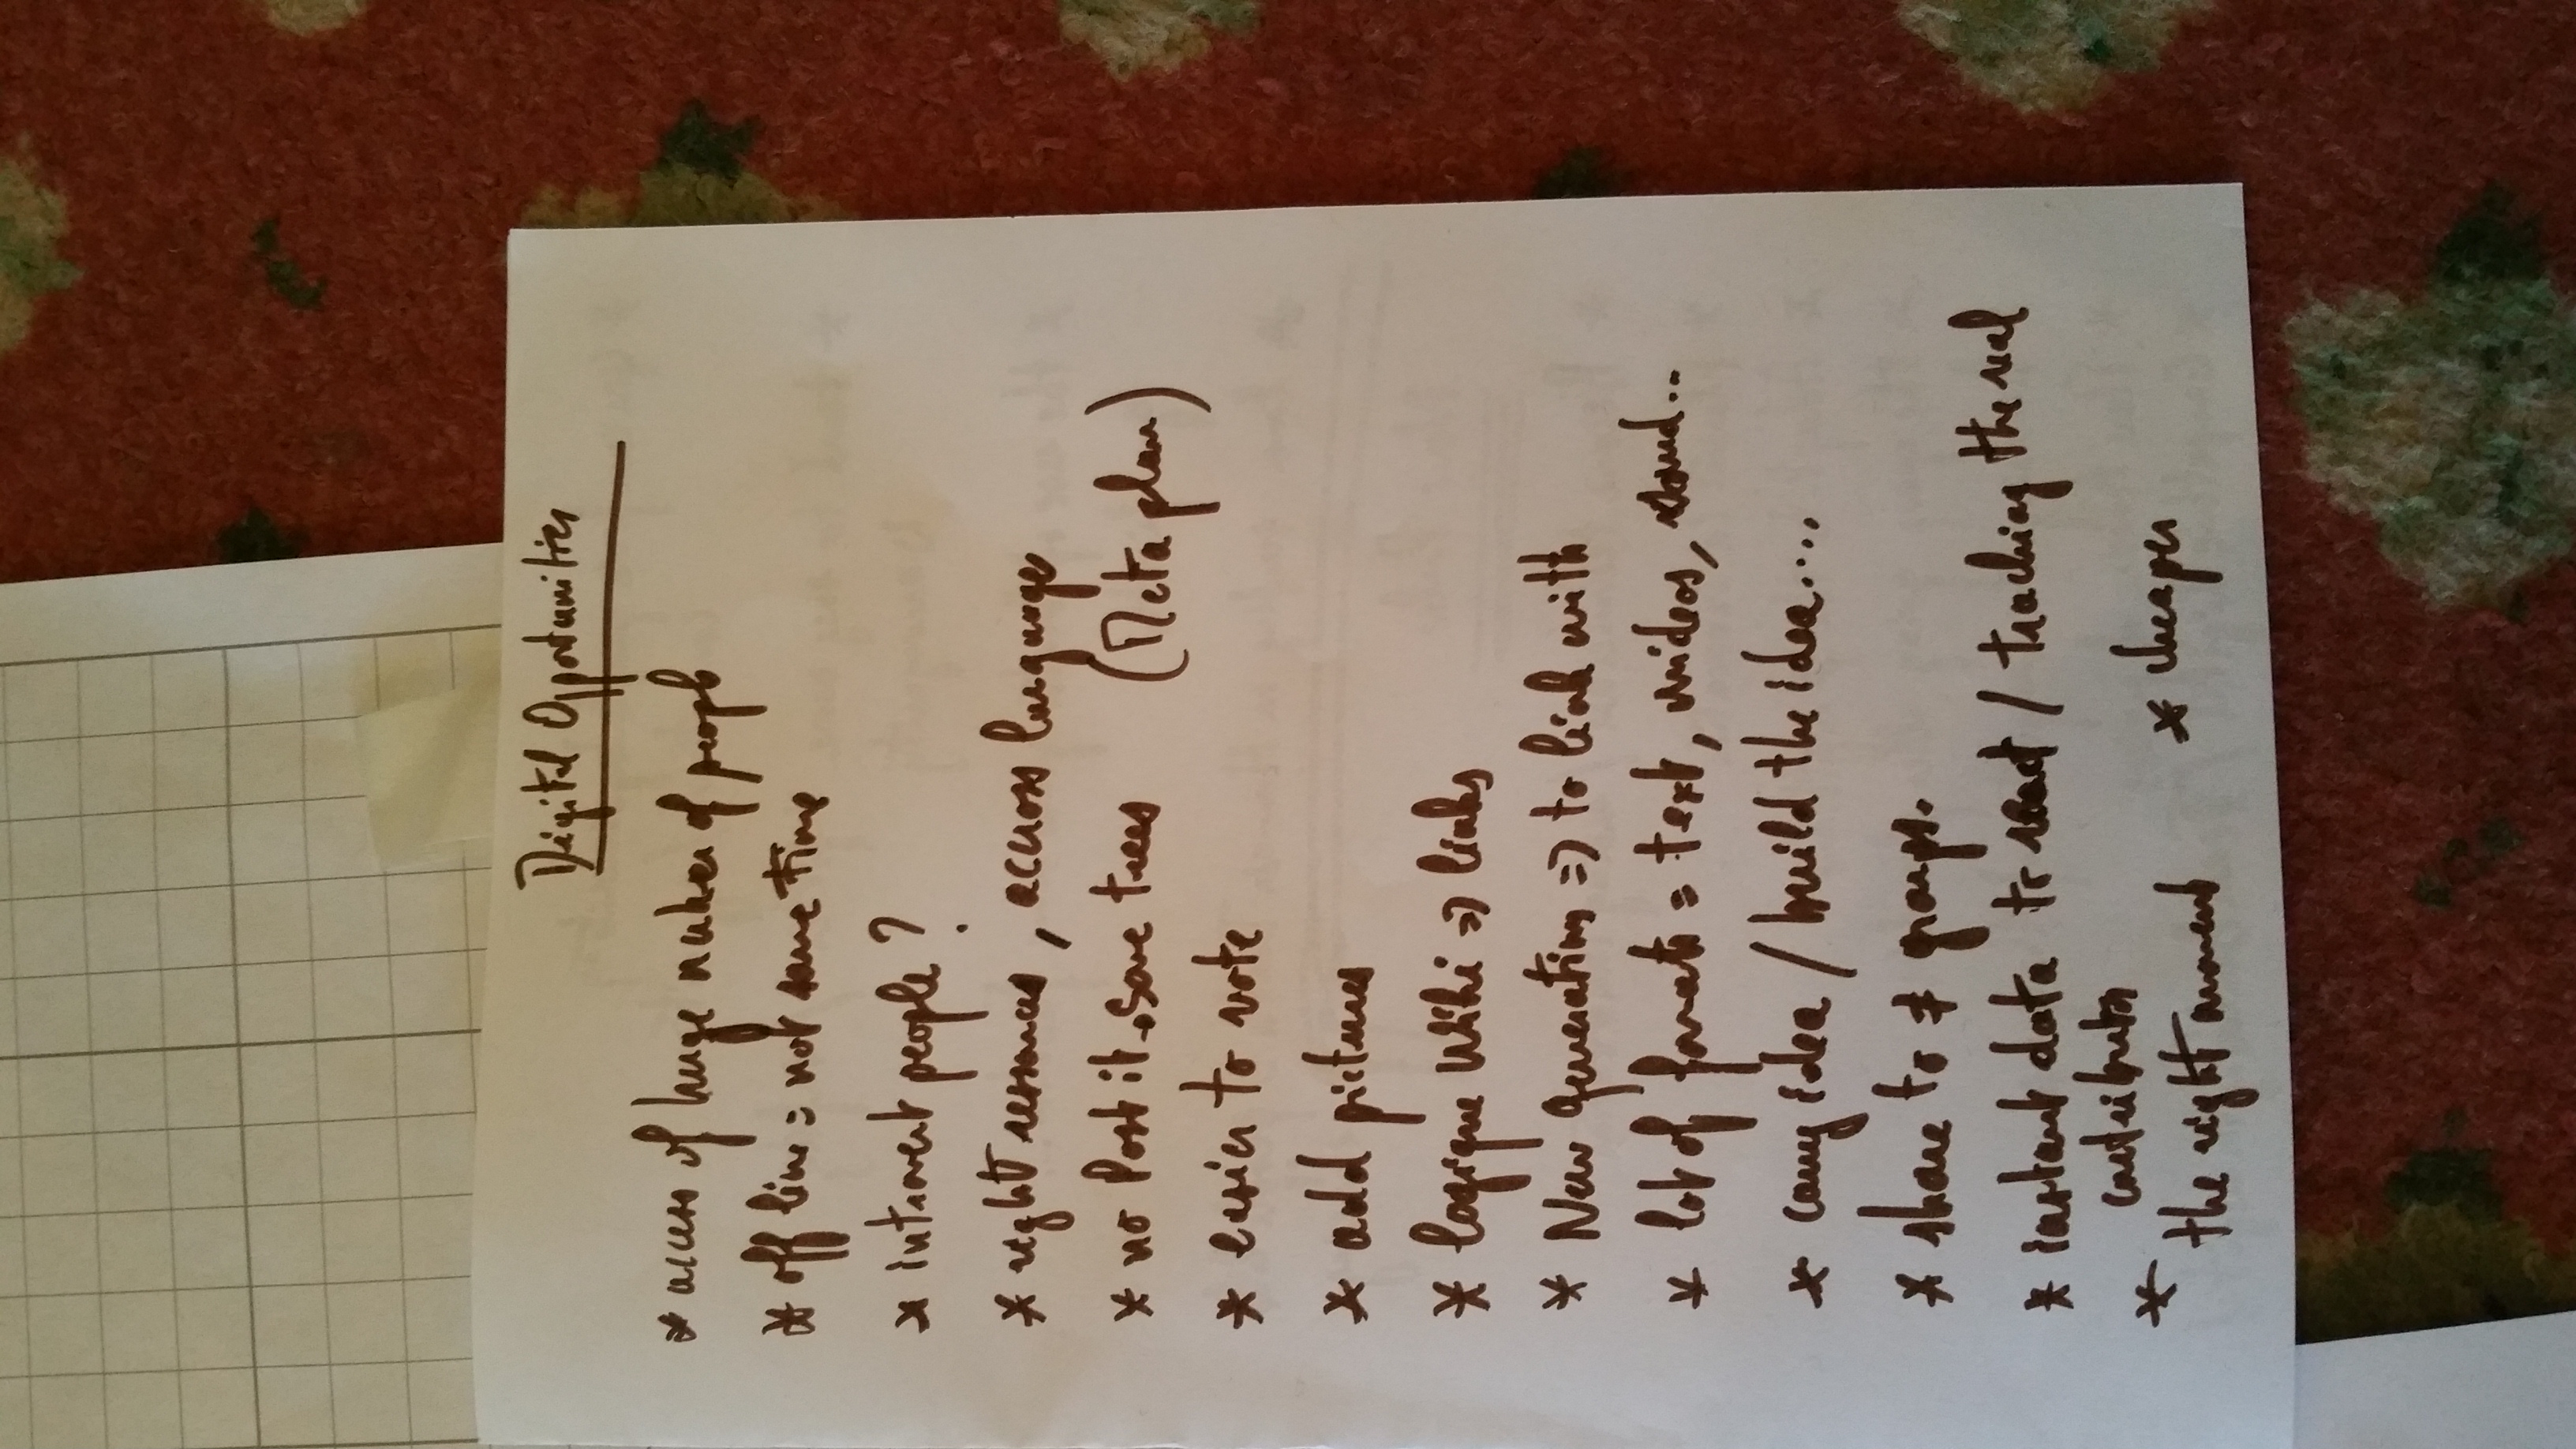 Digital Opportunities
* access of huge number of people
* off line = not same time
* introvert people ?
* right resources, accross language
* no Post it → save trees (Meta plan)
* easier to vote
* add pictures
* logique Wiki => links
* New generation => to link with
* lot of formats = text, videos, sound...
* carry idea / build the idea....
* share to ≠ groups.
* instant data to react / tracking the real
contributor
* the right moment * cheaper